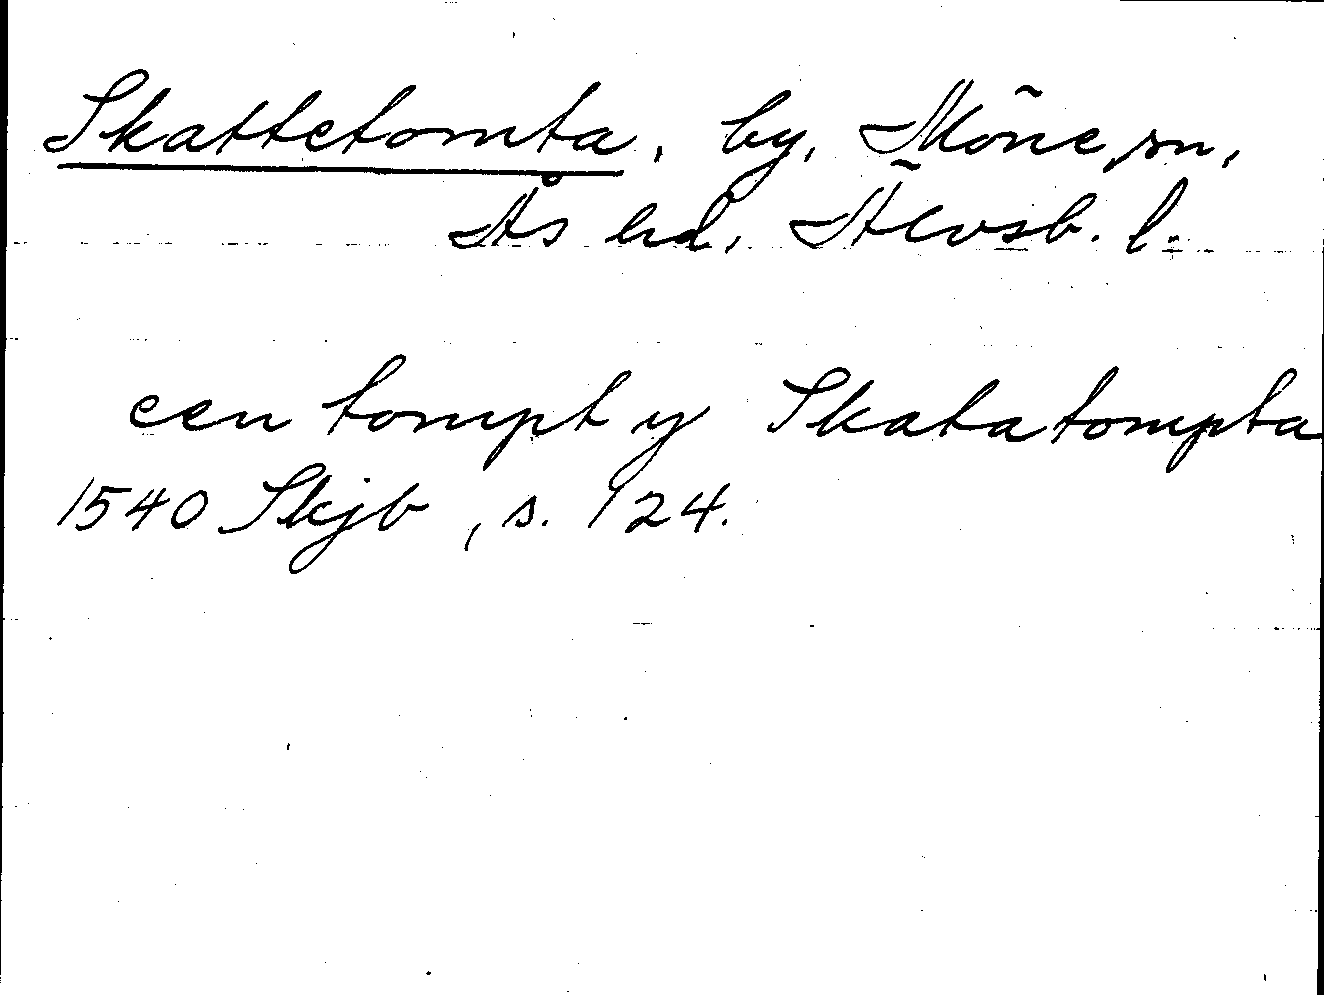 Skattetomta, by, Möne sn,
Ås hd, Älvsb. l.
een tompt y Skatatompta
1540 Skjb, s. 124.